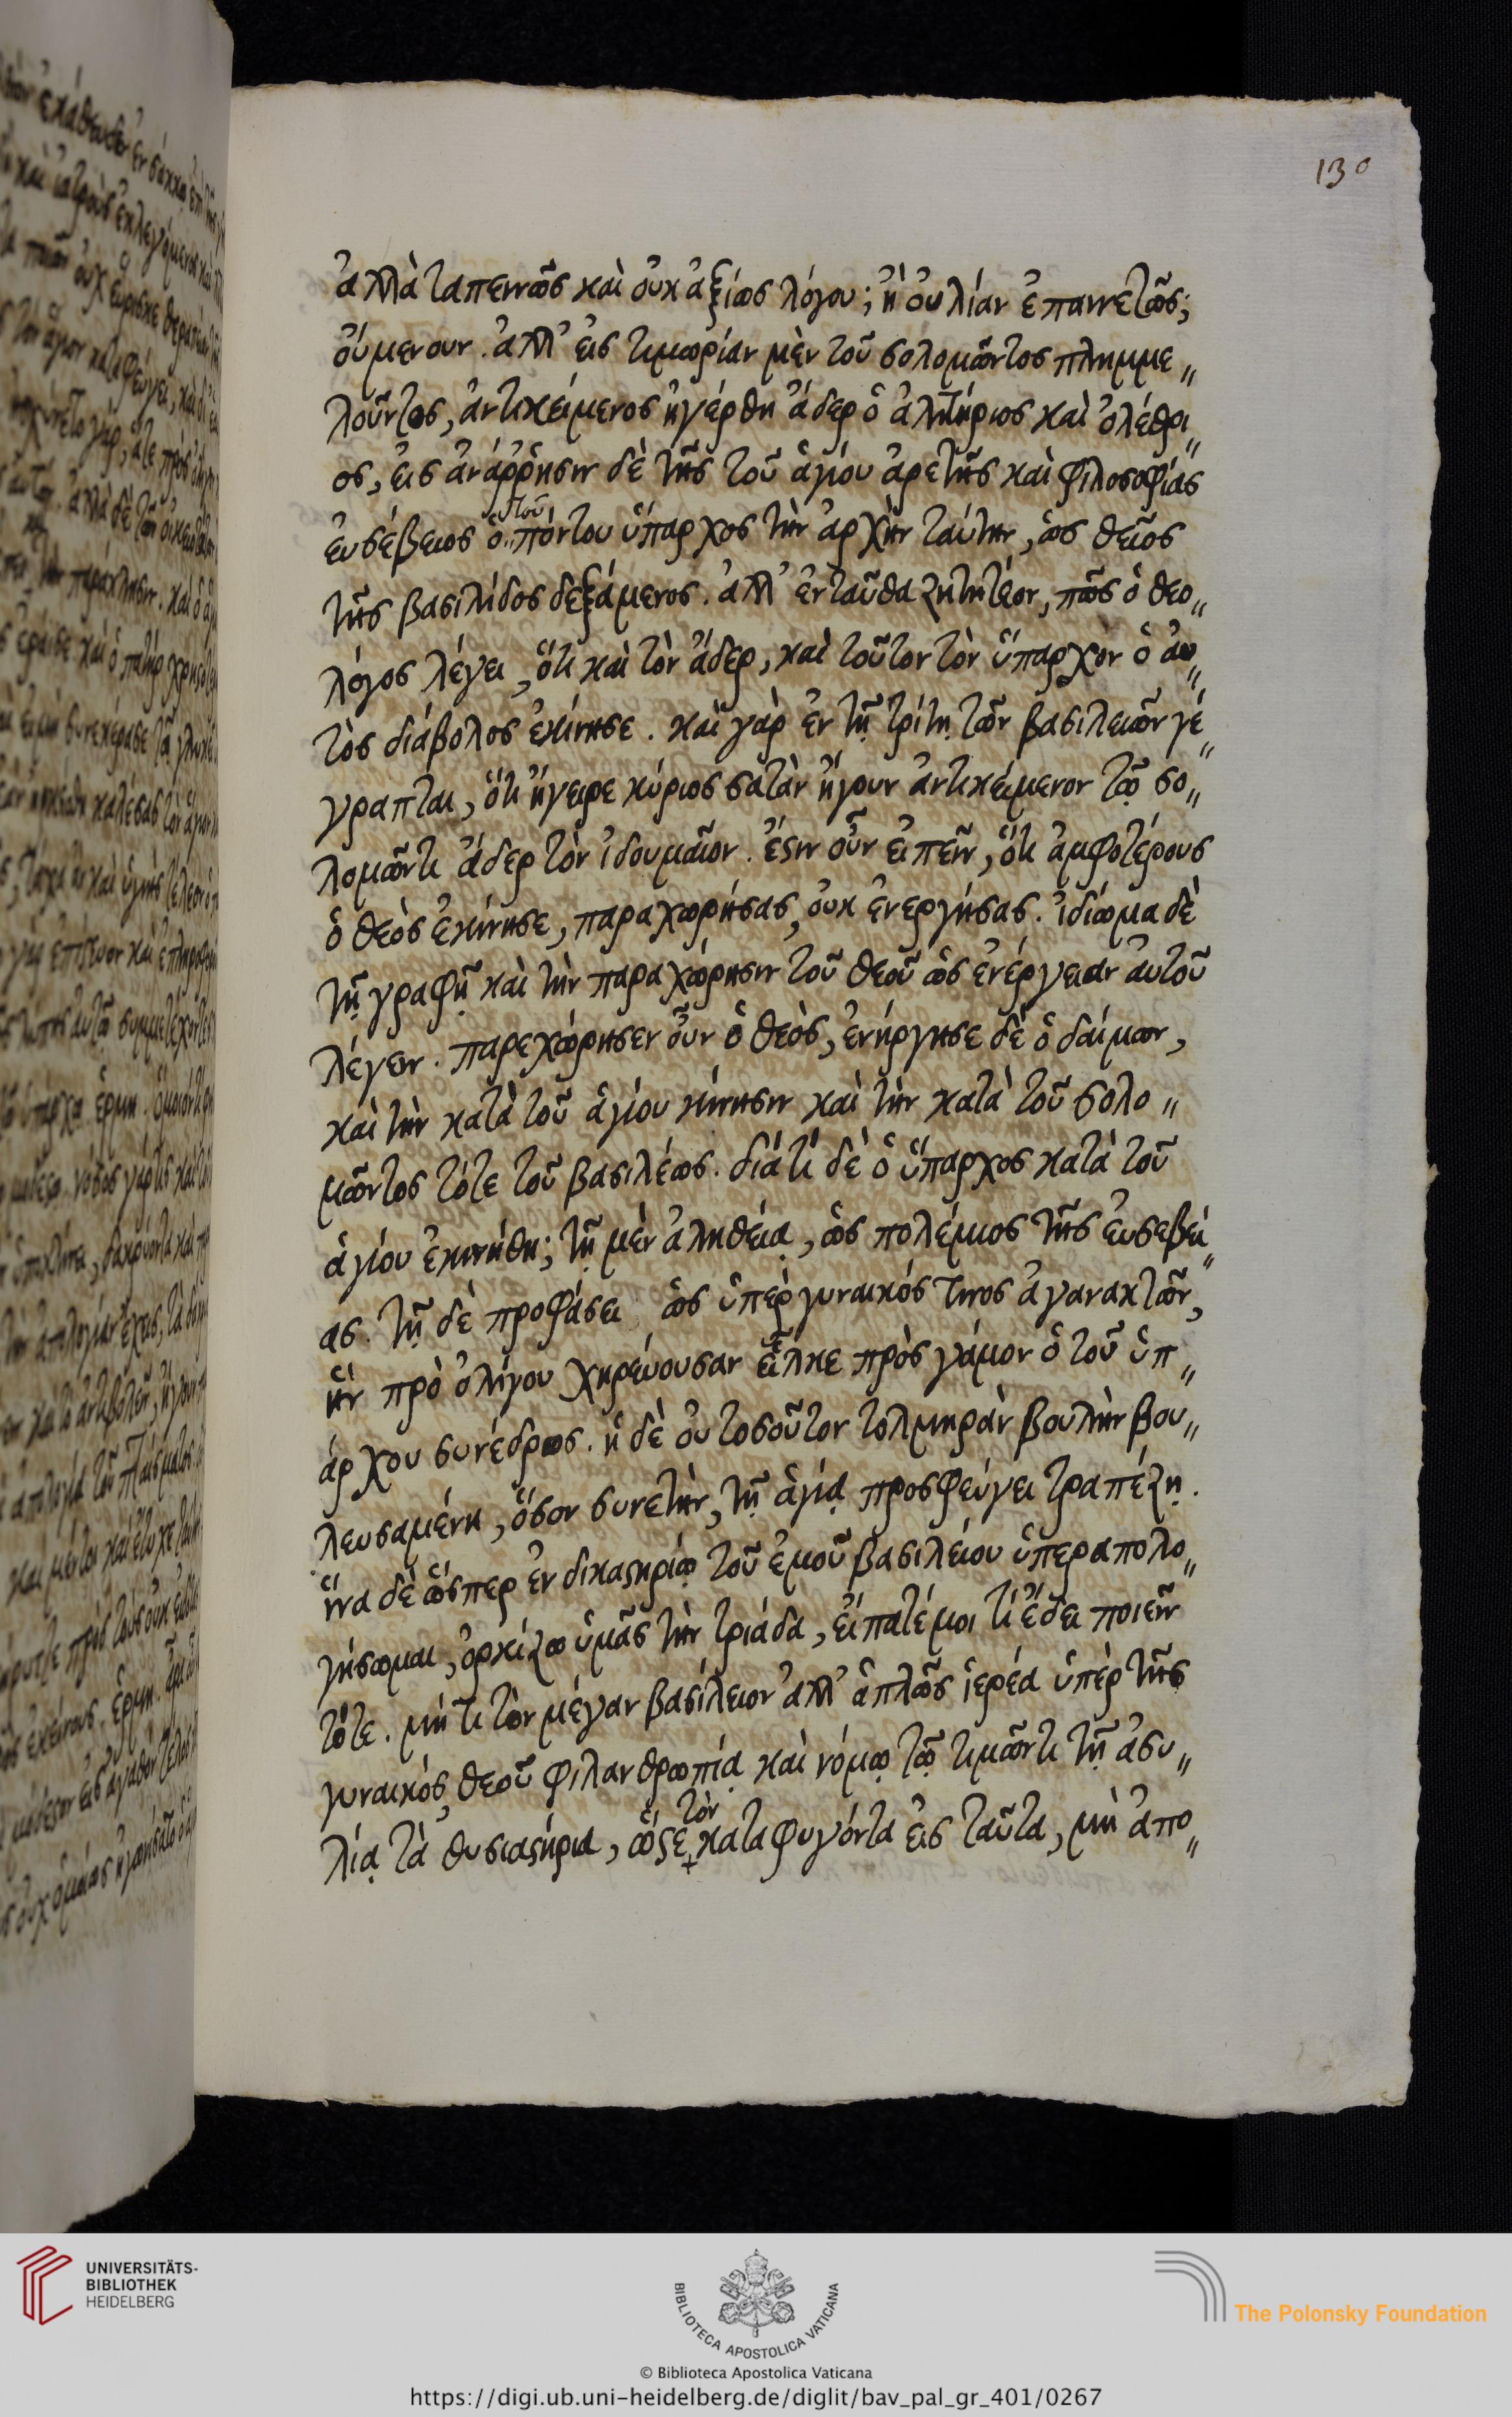 130
ἀλλὰ ταπεινῶς καὶ οὐκ ἀξίως λόγου; ἢ οὐ λίαν ἐπαινετῶς;
οὐμενουν. ἀλλ' εἰς τιμωρίαν μὲν τοῦ σολομῶντος πλημμε„
λοῦντος, ἀντικείμενος ἠγέρθη ἄδερ ὁ ἀλητήριος καὶ ὀλέθρι„
ος, εἰς ἀνάρρησιν δὲ τῆς τοῦ ἁγίου ἀρετῆς καὶ φιλοσοφίας
εὐσέβειος ὁ τοῦ πόντου ὕπαρχος τὴν ἀρχὴν ταύτην, ὡς θεῖος
τῆς βασιλίδος δεξάμενος. ἀλλ' ἐνταῦθα ζητητέον, πῶς ὁ θεο„
λόγος λέγει, ὅτι καὶ τὸν ἄδερ, καὶ τοῦτον τὸν ὕπαρχον ὁ αυ„
τὸς διάβολος ἐκίνησε. καὶ γὰρ ἐν τῇ τρίτῃ τῶν βασιλειῶν γέ„
γραπται, ὅτι ἤγειρε κύριος σατὰν ἤγουν ἀντικείμενον τῷ σο„
λομῶντι ἄδερ τὸν ἰδουμαῖον. ἔστιν οὖν εἰπεῖν, ὅτι ἀμφοτέρους
ὁ θεὸς ἐκίνησε, παραχωρήσας, οὐκ ἐνεργήσας. ἰδίωμα δὲ
τῇ γραφῇ καὶ τὴν παραχώρησιν τοῦ θεοῦ ὡς ἐνέργειαν αὐτοῦ
λέγειν. παρεχώρησεν οὖν ὁ θεὸς, ἐνήργησε δὲ ὁ δαίμων,
καὶ τὴν κατὰ τοῦ ἁγίου κίνησιν καὶ τὴν κατὰ τοῦ σολο„
μῶντος τότε τοῦ βασιλέως. διάτί δὲ ὁ ὕπαρχος κατὰ τοῦ
ἁγίου ἐκινήθη; τῇ μὲν ἀληθείᾳ, ὡς πολέμιος τῆς εὐσεβεί„
ας. τῇ δὲ προφάσει ὡς ὑπὲρ γυναικός τινος ἀγανακτῶν,
ἣν πρὸ ὀλίγου χηρεύουσαν εἷλκε πρὸς γάμον ὁ τοῦ ὑπ„
άρχου συνέδρος. ἡ δὲ οὐ τοσοῦτον τολμηρὰν βουλὴν βου„
λευσαμένη, ὅσον συνετὴν, τῇ ἁγίᾳ προσφεύγει τραπέζῃ.
ἵνα δὲ ὥσπερ ἐν δικαστηρίῳ τοῦ ἐμοῦ βασιλείου ὑπεραπολο„
γήσωμαι, ὁρκίζω ὑμᾶς τὴν τριάδα, εἴπατέ μοι τί ἔδει ποιεῖν
τότε. μή τι τὸν μέγαν βασίλειον ἀλλ' ἁπλῶς ἱερέα ὑπὲρ τῆς
γυναικός, θεοῦ φιλανθρωπίᾳ καὶ νόμῳ τῷ τιμῶντι τῇ ἀσυ„
λίᾳ τὰ θυσιαστήρια, ὥστε τὸν καταφυγόντα εἰς ταῦτα, μὴ ἀπο„
UNIVERSITÄTS-
BIBLIOTHEK
HEIDELBERG
BIBLIOTECA APOSTOLICA VATICANA
© Biblioteca Apostolica Vaticana
The Polonsky Foundation
https://digi.ub.uni-heidelberg.de/diglit/bav_pal_gr_401/0267